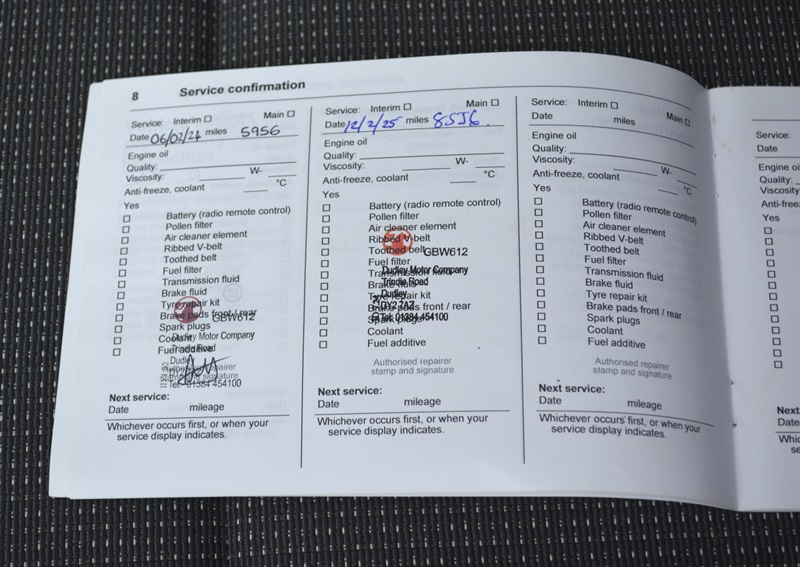 8 Service confirmation
Service: Interim ☐ Main ☐
Date 06/02/24 miles 5956
Engine oil
Quality:
Viscosity: W-
Anti-freeze, coolant °C
Yes
☐ Battery (radio remote control)
☐ Pollen filter
☐ Air cleaner element
☐ Ribbed V-belt
☐ Toothed belt
☐ Fuel filter
☐ Transmission fluid
☐ Brake fluid
☐ Tyre repair kit
☐ Brake pads front / rear
GBW612
☐ Spark plugs
Dudley Motor Company
☐ Coolant
Trindle Road
☐ Fuel additive
Dudley
Authorised repairer
stamp and signature
Tel: 01384 454100
Next service:
Date mileage
Whichever occurs first, or when your
service display indicates.
Service: Interim ☐ Main ☐
Date 12/2/25 miles 8556
Engine oil
Quality:
Viscosity: W-
Anti-freeze, coolant °C
Yes
☐ Battery (radio remote control)
☐ Pollen filter
☐ Air cleaner element
☐ Ribbed V-belt
☐ Toothed belt
GBW612
☐ Fuel filter
Dudley Motor Company
☐ Transmission fluid
Trindle Road
☐ Brake fluid
Dudley
☐ Tyre repair kit
DY2 7AZ
☐ Brake pads front / rear
Tel: 01384 454100
☐ Spark plugs
☐ Coolant
☐ Fuel additive
Authorised repairer
stamp and signature
Next service:
Date mileage
Whichever occurs first, or when your
service display indicates.
Service: Interim ☐ Main ☐
Date miles
Engine oil
Quality:
Viscosity: W-
Anti-freeze, coolant °C
Yes
☐ Battery (radio remote control)
☐ Pollen filter
☐ Air cleaner element
☐ Ribbed V-belt
☐ Toothed belt
☐ Fuel filter
☐ Transmission fluid
☐ Brake fluid
☐ Tyre repair kit
☐ Brake pads front / rear
☐ Spark plugs
☐ Coolant
☐ Fuel additive
Authorised repairer
stamp and signature
Next service:
Date mileage
Whichever occurs first, or when your
service display indicates.
Service:
Date
Engine oil
Quality:
Viscosity
Yes